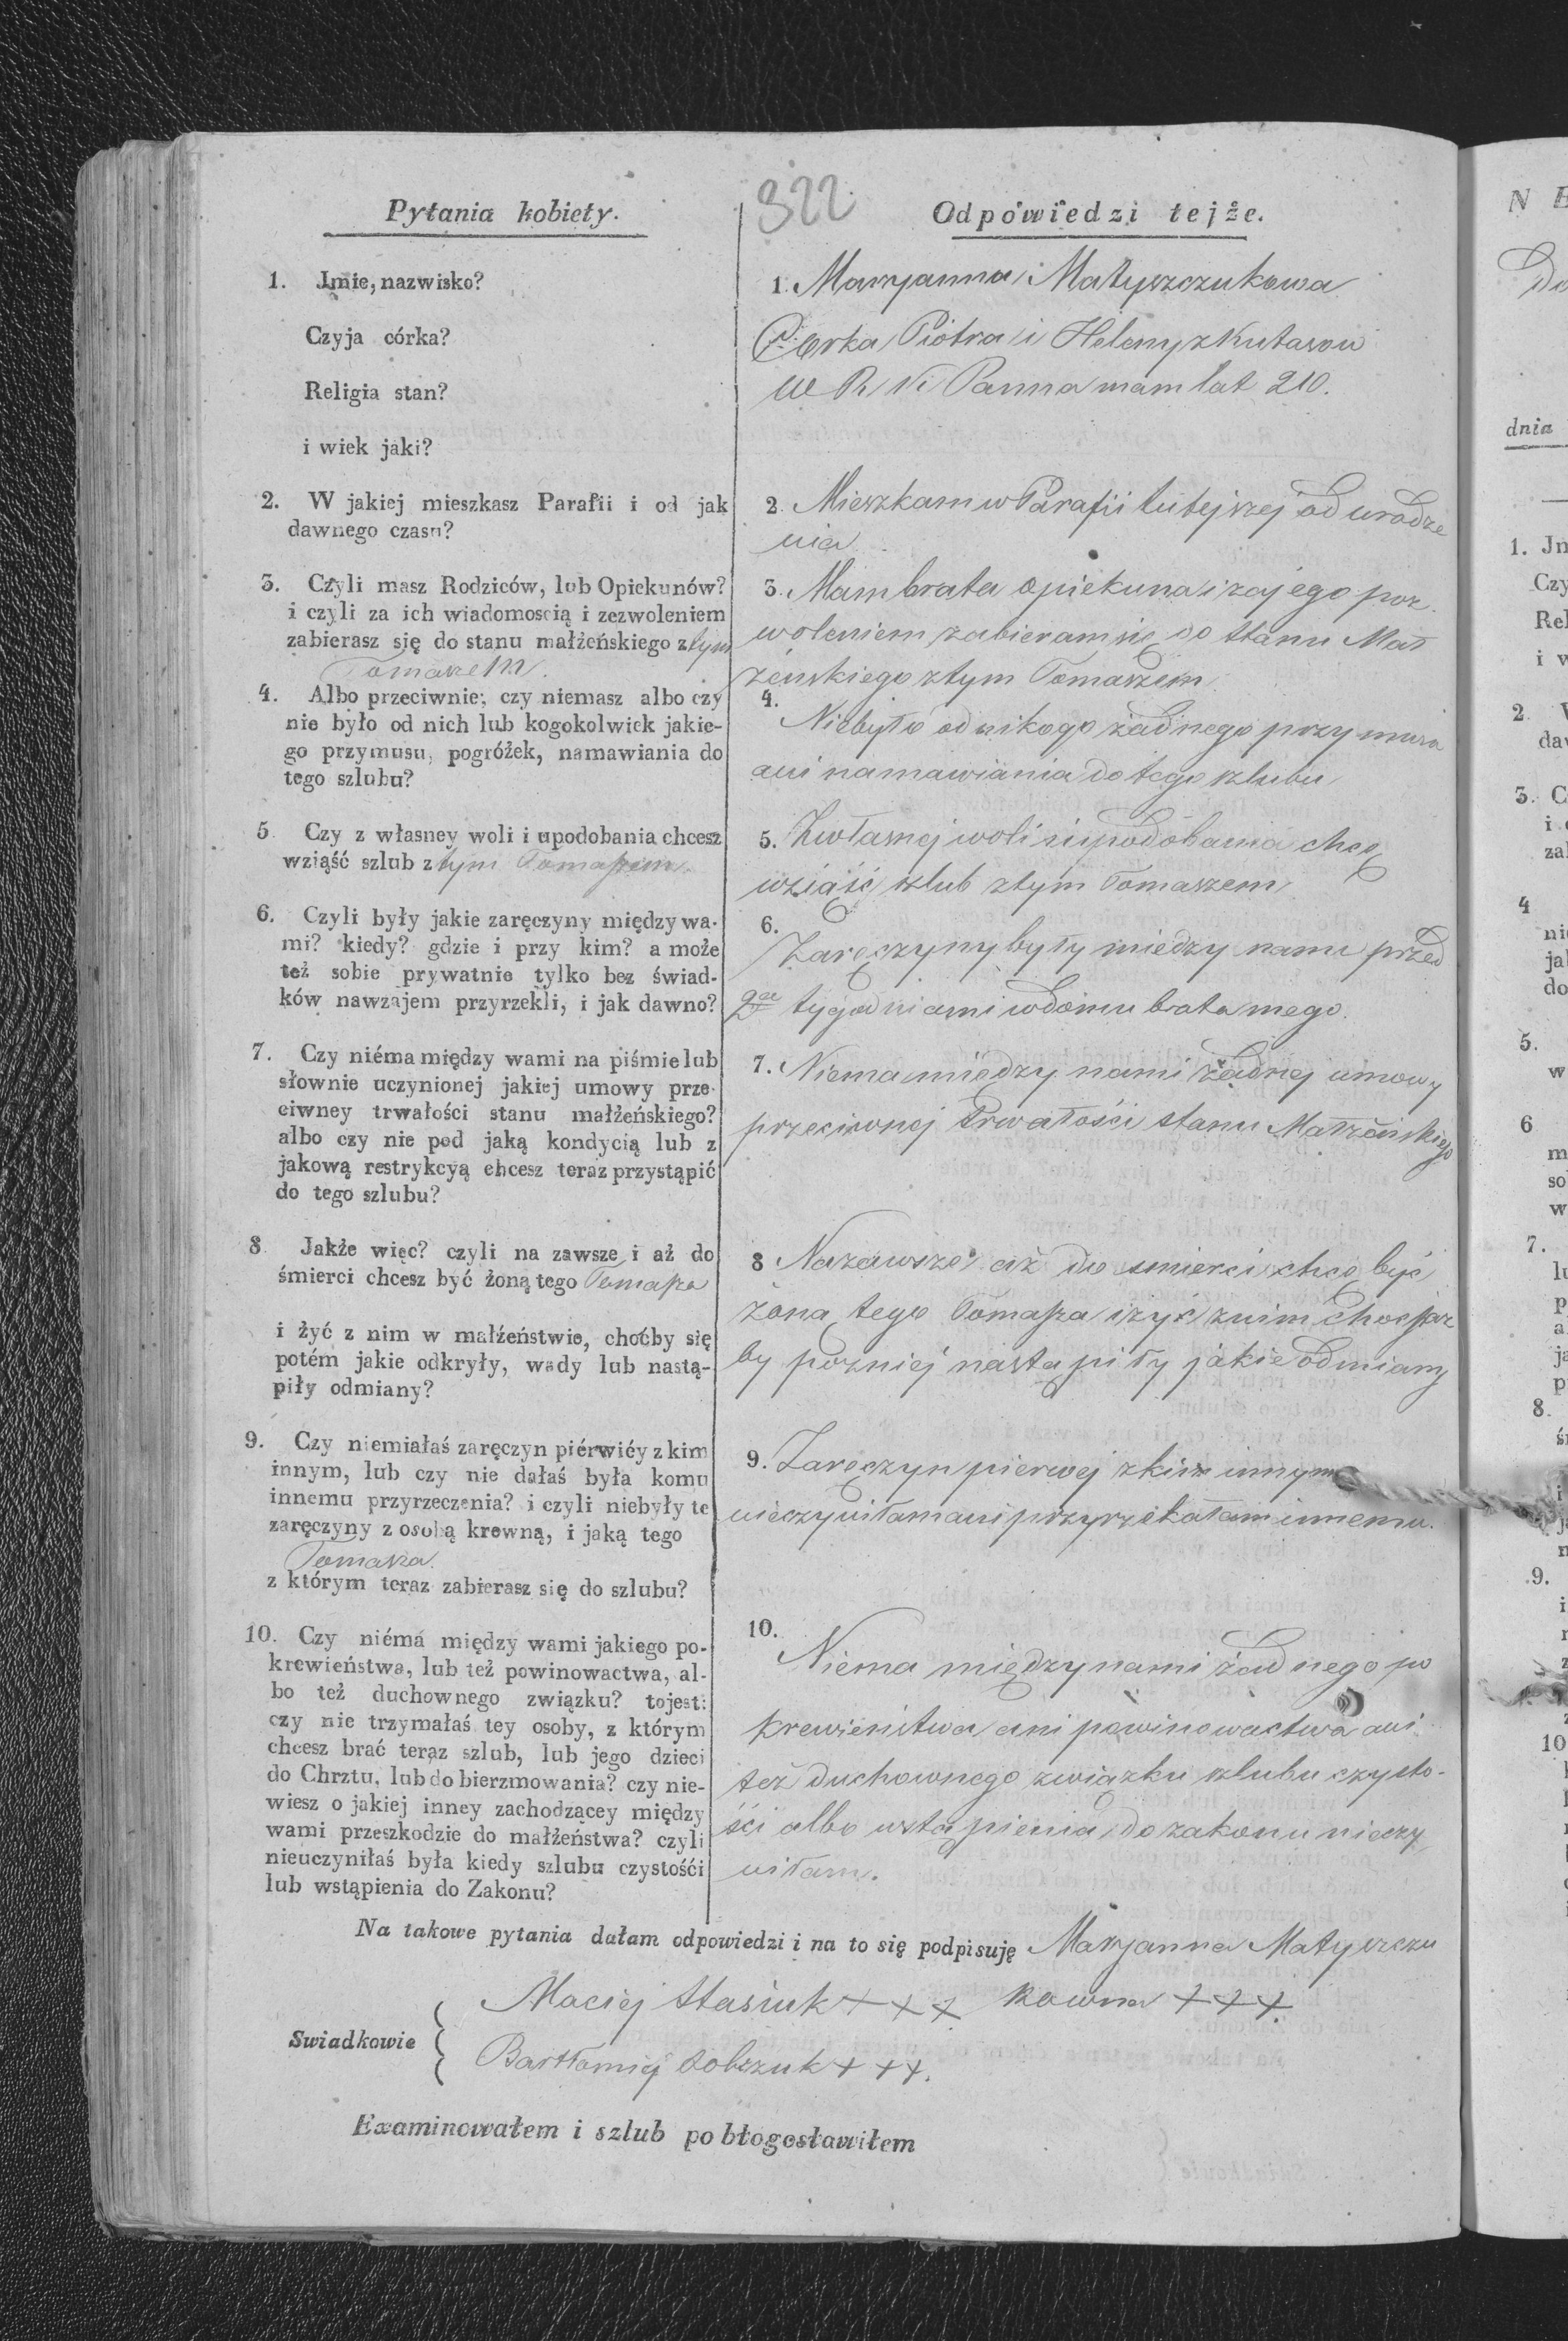 322
Pytania kobiety.
Odpowiedzi tejże.
1. Jmie, nazwisko?
Czyja córka?
Religia stan?
i wiek jaki?
1. Maryanna Matyszczukowa
Corka Piotra i Heleny z Kutasow
W R K Panna mam lat 210.
2. W jakiej mieszkasz Parafii i od jak
dawnego czasu?
2. Mieszkam w Parafii tutejszej od urodze
nia
3. Czyli masz Rodziców, lub Opiekunów?
i czyli za ich wiadomoscią i zezwoleniem
zabierasz się do stanu małżeńskiego z tym
Tomaszem.
3. Mam brata opiekuna i za jego poz
woleniem zabieram się do stanu Mał
żenskiego z tym Tomaszem
4. Albo przeciwnie; czy niemasz albo czy
nie było od nich lub kogokolwiek jakie-
go przymusu, pogróżek, namawiania do
tego szlubu?
4. Niebyło od nikogo żadnego przymusu
ani namawiania do tego szlubu
5. Czy z własney woli i upodobania chcesz
wziąść szlub z tym Tomaszem.
5. Z własnej woli i upodobania chcę
wziąść szlub z tym Tomaszem
6. Czyli były jakie zaręczyny między wa-
mi? kiedy? gdzie i przy kim? a może
też sobie prywatnie tylko bez świad-
ków nawzajem przyrzekli, i jak dawno?
6. Zaręczyny były miedzy nami przed
tygodniami w domu brata mego.
7. Czy niéma między wami na piśmie lub
słownie uczynionej jakiej umowy prze-
ciwney trwałości stanu małżeńskiego?
albo czy nie pod jaką kondycią lub z
jakową restrykcyą chcesz teraz przystąpić
do tego szlubu?
7. Niema miedzy nami żadnej umowy
przeciwnej trwałości stanu Małżeńskiego
8. Jakże więc? czyli na zawsze i aż do
śmierci chcesz być żoną tego Tomasza
i żyć z nim w małżeństwie, choćby się
potém jakie odkryły, wady lub nastą-
piły odmiany?
8 Nazawsze aż do smierci chcę być
żoną tego Tomasza i żyć z nim chociaz
by pozniej nastąpiły jakie odmiany
9. Czy niemiałaś zaręczyn piérwiéy z kim
innym, lub czy nie dałaś była komu
innemu przyrzeczenia? i czyli niebyły te
zaręczyny z osobą krewną, i jaką tego
Tomasza.
z którym teraz zabierasz się do szlubu?
9. Zaręczyn pierwej z kim innym
nieczyniłam ani przyrzekałam innemu.
10. Czy niémá między wami jakiego po-
krewieństwa, lub też powinowactwa, al-
bo też duchownego związku? tojest:
czy nie trzymałaś tey osoby, z którym
chcesz brać teraz szlub, lub jego dzieci
do Chrztu, lub do bierzmowania? czy nie-
wiesz o jakiej inney zachodzącey między
wami przeszkodzie do małżeństwa? czyli
nieuczyniłaś była kiedy szlubu czystośći
lub wstąpienia do Zakonu?
10. Niema między nami żadnego po
krewieństwa ani powinowactwa ani
też duchownego zwiazku szlubu czysto-
ści albo wstąpienia do zakonu nieczy
niłam.
Na takowe pytania dałam odpowiedzi i na to się podpisuję Maryanna Matyszczu
kowna +++
Swiadkowie
Maciej Stasiuk +++
Bartłomiej Sobczuk +++.
Examinowałem i szlub pobłogosławiłem
N
Do
dnia